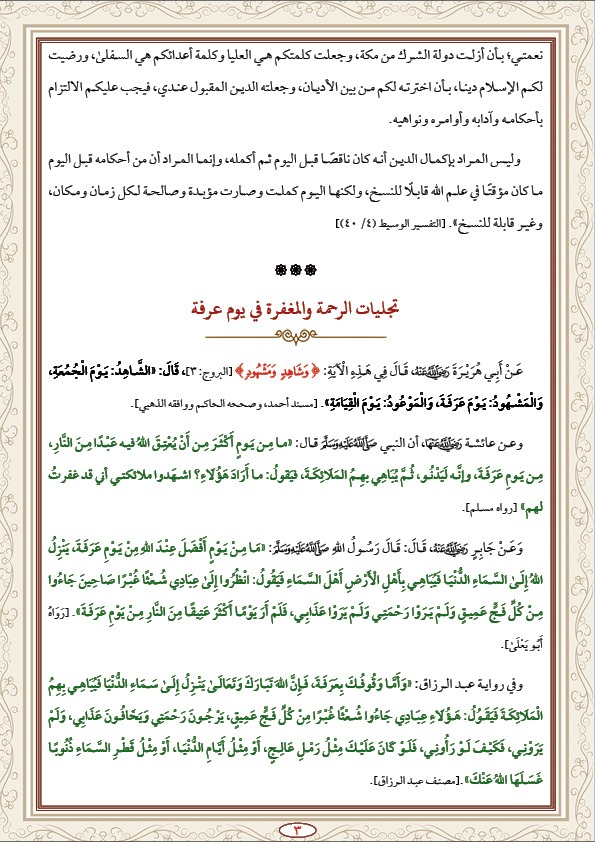 نعمتي؛ بأن أزلت دولة الشرك من مكة، وجعلت كلمتكم هي العليا وكلمة أعدائكم هي السفلىٰ، ورضيت
لكم الإسلام دينا، بأن اخترته لكم من بين الأديان، وجعلته الدين المقبول عندي، فيجب عليكم الالتزام
بأحكامه وآدابه وأوامره ونواهيه.
وليس المراد بإكمال الدين أنه كان ناقصًا قبل اليوم ثم أكمله، وإنما المراد أن من أحكامه قبل اليوم
ما كان مؤقتًا في علم الله قابلًا للنسخ، ولكنها اليوم كملت وصارت مؤبدة وصالحة لكل زمان ومكان،
وغير قابلة للنسخ». [التفسير الوسيط (٤/ ٤٠)]
تجليات الرحمة والمغفرة في يوم عرفة
عَنْ أَبِي هُرَيْرَةَ رَضِيَ اللَّهُ عَنْهُ، قَالَ فِي هَذِهِ الْآيَةِ: ﴿وَشَاهِدٍ وَمَشْهُودٍ﴾ [البروج: ٣]، قَالَ: «الشَّاهِدُ: يَوْمَ الْجُمُعَةِ،
وَالْمَشْهُودُ: يَوْمَ عَرَفَةَ، وَالْمَوْعُودُ: يَوْمَ الْقِيَامَةِ». [مسند أحمد، وصححه الحاكم ووافقه الذهبي].
وعن عائشة رَضِيَ اللَّهُ عَنْهَا، أن النبي صَلَّى اللَّهُ عَلَيْهِ وَسَلَّمَ قال: «ما مِن يَومٍ أَكْثَرَ مِن أَنْ يُعْتِقَ اللهُ فيه عَبْدًا مِنَ النَّارِ،
مِن يَومِ عَرَفَةَ، وإنَّه لَيَدْنُو، ثُمَّ يُبَاهِي بهِمُ المَلَائِكَةَ، فيَقولُ: ما أَرَادَ هَؤُلَاءِ؟ اشهَدوا ملائكتي أني قد غفرتُ
لهم» [رواه مسلم].
وَعَنْ جَابِرٍ رَضِيَ اللَّهُ عَنْهُ، قَالَ: قَالَ رَسُولُ اللهِ صَلَّى اللَّهُ عَلَيْهِ وَسَلَّمَ: «مَا مِنْ يَوْمٍ أَفْضَلَ عِنْدَ اللهِ مِنْ يَوْمِ عَرَفَةَ، يَنْزِلُ
اللهُ إِلَىٰ السَّمَاءِ الدُّنْيَا فَيُبَاهِي بِأَهْلِ الْأَرْضِ أَهْلَ السَّمَاءِ فَيَقُولُ: انْظُرُوا إِلَىٰ عِبَادِي شُعْثًا غُبْرًا ضَاحِينَ جَاءُوا
مِنْ كُلِّ فَجٍّ عَمِيقٍ وَلَمْ يَرَوْا رَحْمَتِي وَلَمْ يَرَوْا عَذَابِي، فَلَمْ أَرَ يَوْمًا أَكْثَرَ عَتِيقًا مِنَ النَّارِ مِنْ يَوْمِ عَرَفَةَ». [رَوَاهُ
أَبُو يَعْلَىٰ].
وفي رواية عبد الرزاق: «وَأَمَّا وَقُوفُكَ بِعَرَفَةَ، فَإِنَّ اللهَ تَبَارَكَ وَتَعَالَىٰ يَنْزِلُ إِلَىٰ سَمَاءِ الدُّنْيَا فَيُبَاهِي بِهِمُ
الْمَلَائِكَةَ فَيَقُولُ: هَؤُلَاءِ عِبَادِي جَاءُوا شُعْثًا غُبْرًا مِنْ كُلِّ فَجٍّ عَمِيقٍ، يَرْجُونَ رَحْمَتِي وَيَخَافُونَ عَذَابِي، وَلَمْ
يَرَوْنِي، فَكَيْفَ لَوْ رَأَوْنِي، فَلَوْ كَانَ عَلَيْكَ مِثْلُ رَمْلِ عَالِجٍ، أَوْ مِثْلُ أَيَّامِ الدُّنْيَا، أَوْ مِثْلُ قَطْرِ السَّمَاءِ ذُنُوبًا
غَسَلَهَا اللهُ عَنْكَ». [مصنف عبد الرزاق].
٣